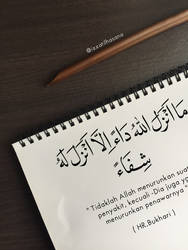 @izzatlhasana
ما أنزل الله داء إلا أنزل له
شفاء
" Tidaklah Allah menurunkan
penyakit, kecuali Dia juga
menurunkan penawarnya "
[ HR.Bukhari ]